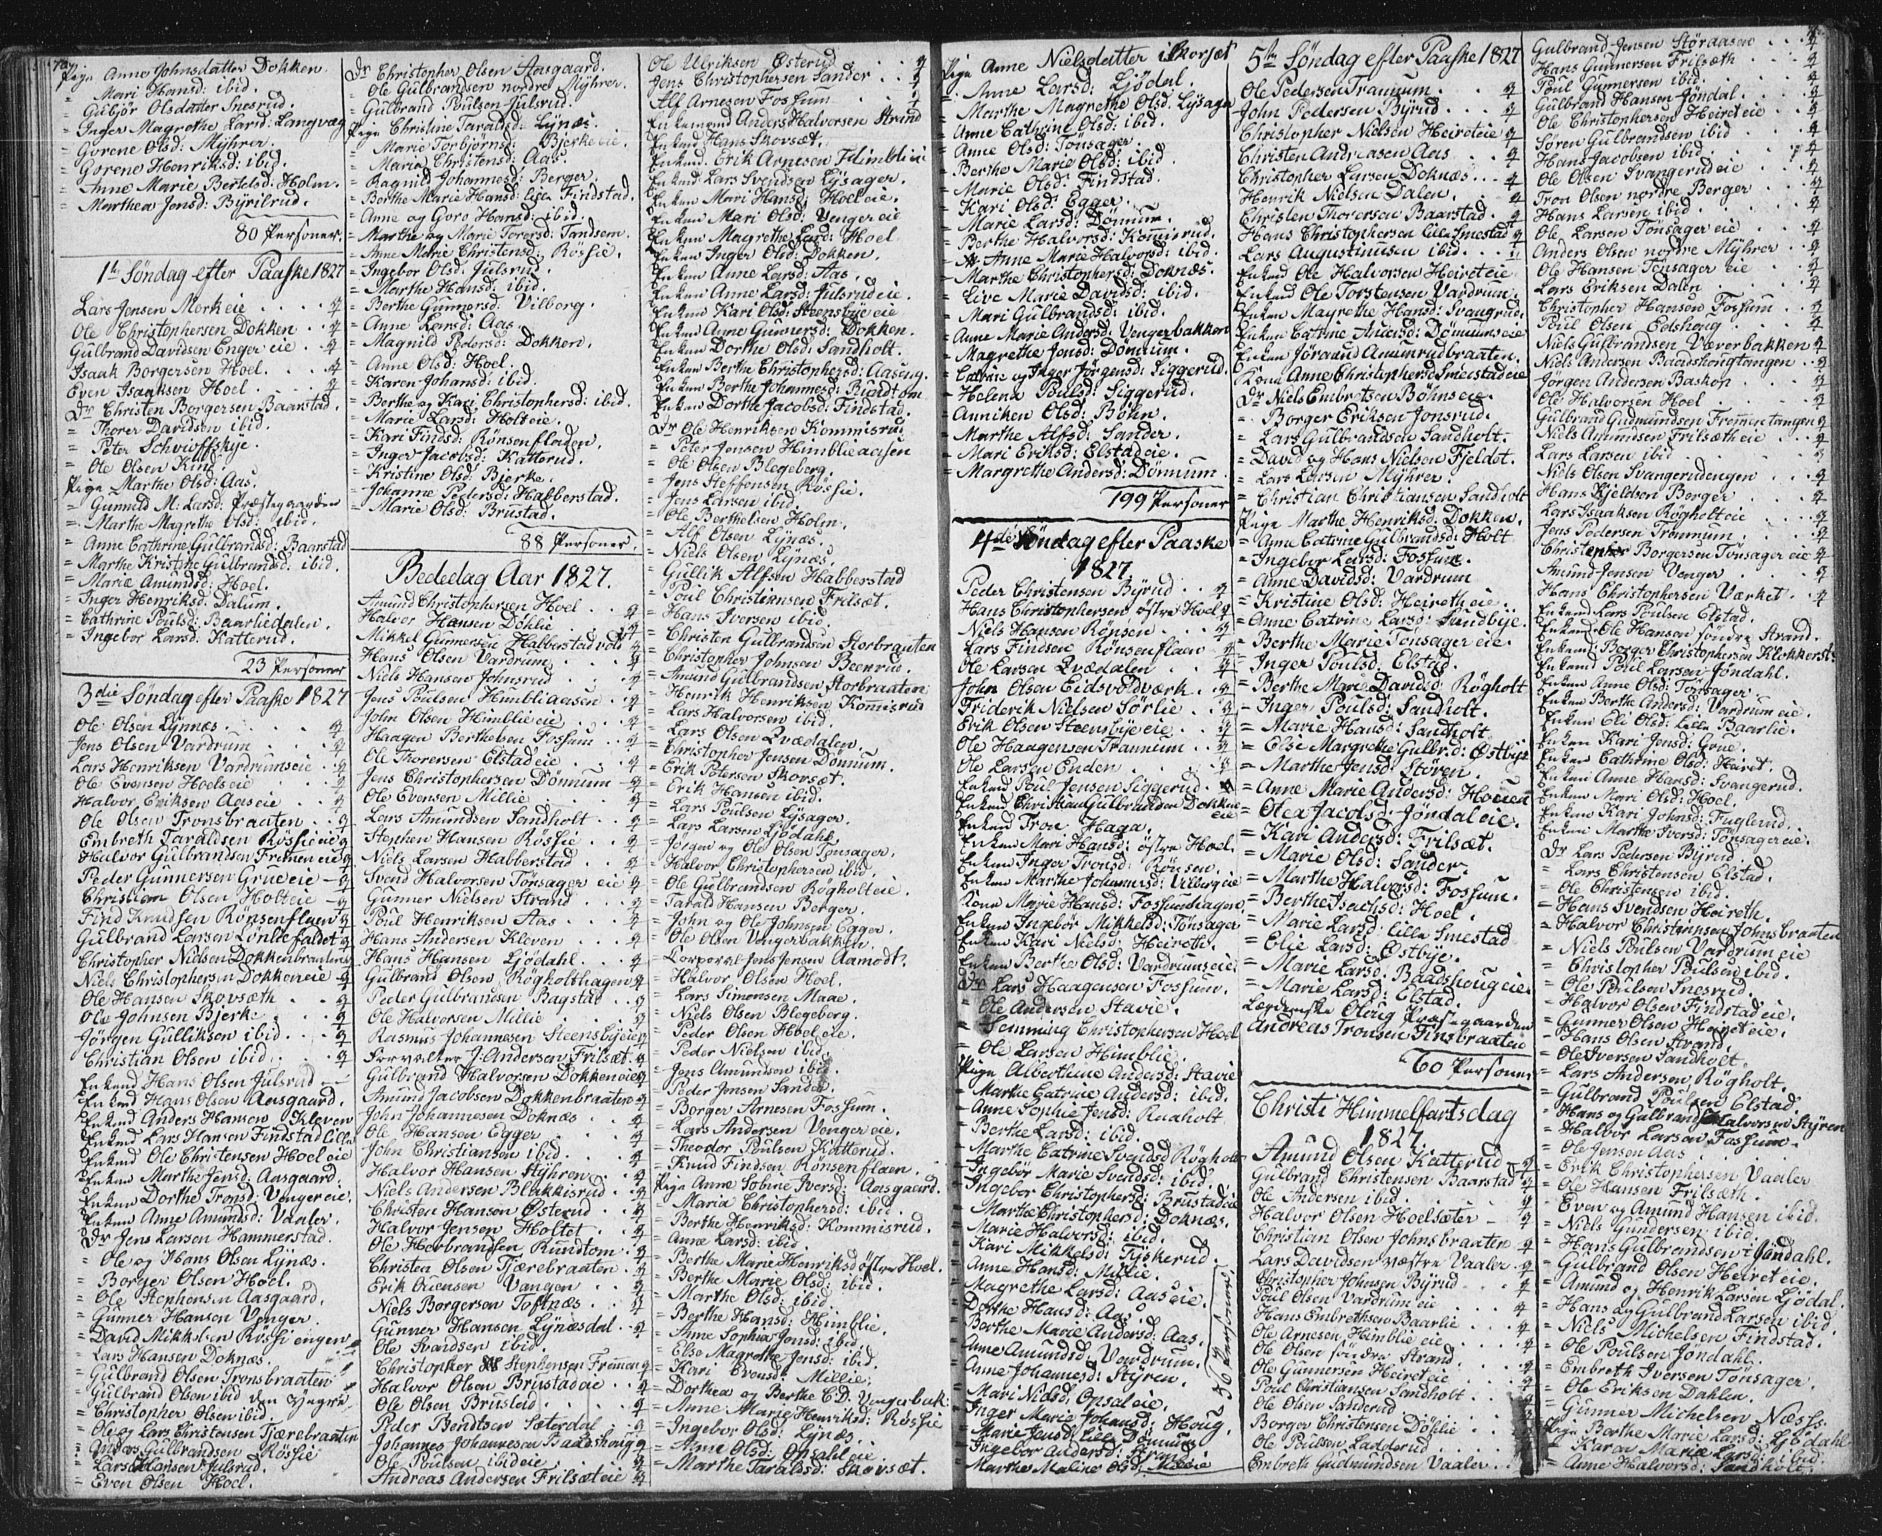 Pige Anne Johnsdatter Dokken
= Mari Hansd: ibid.
= Gulbjør Olsdatter Inesrud.
= Inger Magrethe Larsd: Langvæg
= Gorene Olsd: Myhrer.
= Gorene Henriksd: ibid.
= Anne Marie Bertelsd: Holm.
= Marthea Jensd: Byrilrud.
80 Personer.
1te Søndag efter Paaske 1827
Lars Jensen Mork eie . . . 4
Ole Christophersen Dokken . . 4
Gulbrand Davidsen Enger eie . 4
Isaak Borgersen Hoel . . 4
Even Isaaksen Hoel . . 4
Dr Christen Borgersen Baarstad.
= Thorer Davidsen ibid.
= Peter
= Ole Olsen
Pige Marthe Olsd: Aas.
= Gunnild M: Larsd: Præstegaarden
= Marthe Magrethe Olsd: ibid.
= Anne Cathrine Gulbrandsd: Baarstad
= Marthe Kristine Gulbrandsd: ibid.
= Marie Amundsd: Hoel.
= Inger Henriksd: Dalum.
= Cathrine Poulsd: Baarliedalen.
= Ingebor Larsd: Katterud.
23 Personer
3die Søndag efter Paaske 1827
Ole Olsen Lynæs . . . 4
Jens Olsen Vardrum . . 4
Lars Henriksen Vardrums eie . 4
Ole Evensen Hoels eie . 4
Halvor Eriksen Aas eie . . 4
Ole Olsen Tronsbraaten . . 4
Embreth Taraldsen Røssie eie 4
Halvor Gulbrandsen Fremen eie 4
Peder Gunnersen Grue eie - 4
Christian Olsen Holt eie - 4
Find Knudsen Rønsenflaen 4
Gulbrand Larsen 4
Christopher Nielsen Dokkenbraaten 4
Niels Christophersen Dokken eie 4
Ole Hansen Skovsæth . . 4
Ole Johnsen Bjerke . . 4
Jørgen Gulliksen ibid . . 4
Christian Olsen ibid . . 4
Enkemd Hans Olsen Julsrud
Enkemd Hans Olsen Aasgaard.
Enkemd Anders Hansen Kleven
Enkemd Lars Hansen Findstad lille
Enkemd Ole Christensen Hoel eie
Enken Marthe Jensd: Aasgaard.
Enken Dorthe Tronsd: Venger eie.
Enken Anne Amundsd: Vaaler.
Dr Jens Larsen Hammerstad.
= Ole og Hans Olsen Lynæs.
= Borger Olsen Hoel.
= Ole Stephensen Aasgaard.
= Gunner Hansen Venger.
= David Mikkelsen Røssiengen
= Lars Hansen Doknæs.
= Gulbrand Olsen Tronsbraaten
= Gulbrand Olsen ibid den Yngre
= Christopher Olsen ibid
= Ole og Lars Christensen Tjærebraaten
= Anders Gulbrandsen Røssie
= Lars Larsen Julsrud.
= Even Olsen Hoel.
Dr Christopher Olsen Aasgaard.
= Ole Gulbrandsen nordre Myhrer.
= Gulbrand Poulsen Julsrud.
Pige Christine Taraldsd: Lynæs.
= Marie Torbjørnsd: Bjerke eie.
= Maria Christensd: Aas.
= Ragnild Johannesd: Berger.
= Berthe Marie Hansd: lille Findstad.
= Anne og Goro Hansd: ibid.
= Marthe og Marie Torersd: Sandsem.
= Anne Marie Christensd: Røssie.
= Ingebor Olsd: Julsrud.
= Marthe Hansd: ibid.
= Berthe Gunnersd: Vilborg.
= Anne Larsd: Aas.
= Magnild Pedersd: Dokken.
= Anne Olsd: Hoel.
= Karen Johansd: ibid.
= Berthe og Kari Christophersd: ibid.
= Marie Larsd: Holt eie.
= Kari Findsd: Rønsenfladen.
= Inger Jacobsd: Katterud.
= Kristine Olsd: Bjerke.
= Johanne Pedersd: Habberstad.
= Marie Olsd: Brustad.
88 Personer.
Bededag Aar 1827.
Amund Christophersen Hoel . . 4
Halvor Hansen Døhlie . . 4
Mikkel Gunnersen Habberstadvold 4
Hans Olsen Vardrum . . 4
Niels Hansen Johnsrud . . 4
Jens Poulsen Humbliaaesen . 4
John Olsen Himblie eie . . 4
Haagen Berthelsen Fossum . . 4
Ole Thorersen Elstad eie . . 4
Jens Christophersen Dønnum - 4
Ole Evensen Millie . . . 4
Lars Amundsen Sandholt . . 4
Stephen Hansen Røssie . . 4
Niels Larsen Habberstad . . 4
Svend Halvorsen Tønsager eie 4
Gunner Nielsen Strand . . 4
Poul Henriksen Aas . . . 4
Hans Andersen Kleven . . . 4
Hans Hansen Ljødahl . . 4
Gulbrand Olsen Røgholthagen 4
Peder Gulbrandsen Bagstad . 4
Ole Halvorsen Millie . . . 4
Rasmus Johannesen Steensbye eie 4
Forvalter J: Andersen Frilsæt. 4
Gulbrand Halvorsen Dokken eie 4
Amund Jacobsen Dokkenbraaten 4
John Johannesen Doknæs . . 4
Ole Hansen Egger . . 4
John Christiansen ibid. . . 4
Halvor Hansen Styhren . . 4
Niels Andersen Blakkisrud . 4
Christen Hansen Østerud . . 4
Halvor Jensen Holtet . . 4
Ole Herbrandsen Rundtom . 4
Christen Olsen Tjærebraaten . 4
Erik Ericnsen Vangen . . 4
Niels Borgersen Toftnæs . . 4
Gunner Hansen Lynæsdal . . 4
Ole Svendsen ibid. . . 4
Christopher Stephensen Fremen 4
Halvor Olsen Brustad eie . . 4
Ole Olsen Brusteid . . . 4
Peder Bendtsen Sæterdal . 4
Johannes Johannesen Badeshoug 4
Ole Poulsen ibid eie . . . 4
Andreas Andersen Frilsæt eie 4
Ole Ulriksen Østerud . . 4
Jens Christophersen Sander . . 4
Alf Arnesen Fossum . . . 4
Enkemand Anders Halvorsen Strand
Enkemd Hans Skovsæt.
Enkemd Erik Arnesen Himblie
Enkemd Lars Svendsen Lysager.
Enken Mari Hansd: Hoel eie.
Enken Mari Olsd: Venger eie
Enken Magrethe Larsd: Hoel.
Enken Inger Olsd: Dokken.
Enken Anne Larsd: Aas.
Enken Anne Larsd: Julsrud eie.
Enken Kari Olsd: Steensbye eie
Enken Anne Gunnersd: Dokken.
Enken Dorthe Olsd: Sandholt.
Enken Berthe Christophersd: Aaseng.
Enken Berthe Johannesd: Rundtom
Enken Dorthe Jacobsd: Findstad.
Dr Ole Henriksen Kommisrud
= Peter Jensen Humbliaaesen
= Ole Olsen Blegeberg.
= Jens Steffensen Røssie.
= Jens Larsen ibid.
= Ole Berthelsen Holm.
= Alf Olsen Lynæs.
= Niels Olsen Lynæs.
= Gullik Alfsen Habberstad
= Poul Christiansen Frilsæt.
= Hans Iversen ibid.
= Christen Gulbrandsen Storbraaten
= Christopher Johnsen Beenrud.
= Amund Gulbrandsen Storbraaten
= Henrik Henriksen Kommisrud
= Lars Halvorsen ibid.
= Lars Olsen Qvædalen.
= Christopher Jensen Dønnum.
= Erik Petersen Skovsæt.
= Erik Hansen ibid.
= Lars Poulsen Lysager.
= Lars Larsen Ljødahl.
= Jørgen og Ole Olsen Tønsager.
= Halvor Christophersen ibid.
= Ole Gulbrandsen Røgholt eie.
= Tarald Hansen Berger.
= John og Ole Johnsen Egger.
= Ole Olsen Vengerbakken.
= Corporal Jens Jensen Aamodt.
= Halvor Olsen Hoel.
= Lars Simensen Maae.
= Niels Olsen Blegeberg.
= Peder Olsen Hoel eie.
= Peder Nielsen ibid.
= Jens Amundsen ibid.
= Peder Jensen Sander
= Borger Arnesen Fossum.
= Lars Andersen Venger eie.
= Theodor Poulsen Katterud.
= Knud Findsen Rønsenflaen.
Pige Anne Sobine Iversd: Aasgaard.
= Maria Christophersd: ibid.
= Berthe Henriksd: Kommisrud.
= Anne Larsd: ibid.
= Berthe Marie Henriksd østre Hoel.
= Berthe Marie Olsd: ibid.
= Marthe Olsd: ibid
= Berthe Hansd: Himblie.
= Anne Sophia Jensd: ibid.
= Else Magrethe Jensd: ibid.
= Kari Evensd: Millie.
= Dorthea og Berthe C: D: Vengerbak:
= Anne Marie Henriksd: Røssie
= Ingebor Olsd: Lynæs.
= Anne Olsd: Opsahl eie
= Marthe Taralsd: Skovsæt.
Pige Anne Nielsdatter Skovsæt
= Anne Larsd: Ljødal.
= Marthe Magrethe Olsd: Lysager
= Anne Cathrine Olsd: ibid.
= Anne Olsd: Tonsager.
= Berthe Marie Olsd: ibid.
= Marie Olsd: Findstad.
= Kari Olsd: Egger.
= Marie Larsd: Dønnum.
= Berthe Halvorsd: Kommisrud.
= Anne Marie Halvorsd: ibid.
= Marthe Christophersd: Doknæs.
= Live Marie Davidsd: ibid.
= Mari Gulbrandsd: ibid.
= Anne Marie Andersd: Vengerbakken
= Magrethe Jensd: Dønnum.
= Catrine og Inger Jørgensd: Siggerud.
= Helena Poulsd: Siggerud.
= Anniken Olsd: Bøhn.
= Marthe Alfsd: Sander.
= Mari Eriksd: Elstad eie.
= Margrethe Andersd: Dønnum
199 Personer
4de Søndag efter Paaske
1827.
Peder Christensen Byrud . . 4
Hans Christophersen, østre Hoel 4
Niels Hansen Rønsen . . 4
Lars Findsen Rønsenflaen 4
Ole Larsen Qvædalen . . 4
John Olsen Eidsvoldværk . 4
Friderik Nielsen Sørlie . . 4
Erik Olsen Steensbye eie . . 4
Ole Haagensen Trannum . . 4
Ole Larsen Enden . . . 4
Enkemd Poul Jensen Siggerud .
Enkemd Christian Gulbrandsen Dokken
eie
Enkemd Tron Haga.
Enken Mari Hansd: østre Hoel.
Enken Inger Tronsd: Rønsen.
Enken Marthe Johannesd: Vilberg eie
Kone Marie Hansd: Fossumhagen.
Enken Ingebor Mikkelsd: Tønsager
Enken Kari Nielsd: Heireth.
Enken Berthe Olsd: Vardrums eie.
Dr Lars Haagensen Fossum.
= Ole Andersen Stavie.
= Semming Christophersen Hoel
= Ole Larsen Himblie.
Pige Albertine Andersd: Stavie
= Marthe Catrine Andersd: ibid.
= Anne Sophie Jensd: Ruaholt
= Berthe Larsd: ibid.
= Marthe Catrine Svendsd Røgholt
= Ingebor Marie Svendsd: ibid.
= Ingebor Christophersd: Brustad eie
= Marthe Christophersd: Doknæs.
= Marie Halvorsd: ibid.
= Kari Mikkelsd: Tyskerud.
= Anne Hansd: Millie.
= Magrethe Larsd: Aas eie.
= Dorthe Hansd: Aas.
= Berthe Marie Andersd: Aas.
= Anne Amundsd: Vardrum.
= Anne Johannesd: Styren.
= Mari Nielsd: Opsal eie.
= Inger Marie Johansd: Houg.
= Marie Jensd: lille Dønnum
= Ingebor Andersd: Strand
= Marthe Maline Olsd: Millie
56 Personer
5te Søndag efter Paaske 1827
Ole Pedersen Trannum . . 4
John Pedersen Byrud . . 4
Christopher Nielsen Heiret eie 4
Christen Andreasen Aas . . 4
Christopher Larsen Doknæs . . 4
Henrik Nielsen Dalen . . 4
Christen Thorersen Baarstad . 4
Hans Christophersen lille Smestad 4
Lars Augustinusen ibid . . 4
Enkemd Ole Halvorsen Heiret eie
Enkemd Ole Torstensen Vardrum.
Enken Magrethe Hansd: Svangrud.
Enken Catrine Andersd: Dønnums eie
Enken Jøraand Amunrudbraaten.
Kone Anne Christophersd Smestad eie
Dr Niels Embretsen Bøhns eie.
= Borger Eriksen Jonsrud.
= Lars Gulbrandsen Sandholt.
= David og Hans Nielsen Fjeldet.
= Lars Larsen Myhrer.
= Christian Christiansen Sandholt
Pige Marthe Henriksd: Dokken.
= Anne Catrine Gulbrandsd: Holt
= Ingebor Larsd: Fossum.
= Anne Davidsd: Vardrum
= Kristine Olsd: Heireth eie.
= Anne Catrine Larsd: Sundbye.
= Berthe Marie Tonsager eie.
= Inger Poulsd: Elstad.
= Berthe Marie Davidsd: Røgholt
= Inger Poulsd: Sandholt.
= Marie Hansd: Sandholt.
= Else Margrethe Gulbrd: Østbye
= Marthe Jensd: Støven.
= Anne Marie Andersd: Hoeien
= Olea Jacobsd: Jøndal eie.
= Kari Andersd: Frilsæt.
= Marie Olsd: Sander.
= Marthe Halvorsd: Fossum.
= Berthe Isachsd: Hoel.
= Marie Larsd: lille Smestad
= Elie Larsd: Østbye.
= Marie Larsd: Baadshoug eie
= Marie Larsd: Elstad.
Lægdsenske Oloug Præstegaarden
Andreas Tronsen Finsbraaten
60 Personer
Christi Himmelfartsdag
1827.
Amund Olsen Katterud . 4
Gulbrand Christensen Baarstad 4
Ole Andersen ibid . . . 4
Halvor Olsen Hoelsæter - 4
Christian Olsen Johnsbraaten 4
Lars Davidsen vestre Vaaler . 4
Christopher Johnsen Byrud . 4
Poul Olsen Vardrum eie . . 4
Hans Embrethsen Baarlie . . 4
Ole Arnesen Himblie eie . . 4
Ole Olsen søndre Strand . . 4
Ole Gunnersen Heiret eie . . 4
Poul Christiansen Sandholt . 4
Ole Olsen Sanderud . . . 4
Borger Christensen Døhlie . .
Ole Poulsen Ladderud . . .
Embreth Gudmundsen Vaaler . .
Gulbrand Jensen Støraasen . . 4
Hans Gunnersen Frilsæth . . 4
Poul Gunnersen ibid . . 4
Gulbrand Hansen Jøndal . . 4
Ole Christophersen Heiret eie . 4
Søren Gulbrandsen ibid . . 4
Hans Jacobsen ibid . . 4
Ole Olsen Svangerud eie . . 4
Tron Olsen nordre Berger . 4
Hans Larsen ibid . . . 4
Ole Larsen Tonsager eie . . 4
Anders Olsen nordre Myhrer . 4
Ole Hansen Tonsager eie . . 4
Lars Eriksen Dalen . . . 4
Christopher Hansen Fossum . 4
Poul Olsen Edshoug . . . 4
Niels Gulbrandsen Væverbakken 4
Niels Andersen Baadshougtangen . 4
Jørgen Andersen Baskop . . 4
Ole Halvorsen Hoel . . . 4
Gulbrand Gudmundsen Fremmentangen 4
Niels Amundsen Frilsæth eie . . 4
Lars Larsen ibid . . . 4
Niels Olsen Svangerudengen . . 4
Hans Kjeldsen Borger . . 4
Lars Isaaksen Røgholt eie . . 4
Jens Pedersen Tronnum . . 4
Christopher Borgersen Tonsager eie 4
Amund Jensen Venger . . . 4
Hans Christophersen Værket . . 4
Enkemd Lars Poulsen Elstad.
Enkemd Ole Hansen søndre Strand.
Enkemd Borger Christophersen Klokkerst:
Enkemd Poul Larsen Jøndahl.
Enken Anne Olsd: Tonsager.
Enken Berthe Andersd: Vardrum eie.
Enken Eli Olsd: lille Baarlie.
Enken Kari Jensd: Grue.
Enken Cathrine Olsd: Heiret.
Enken Anne Hansd: Svangerud.
Enken Mari Olsd: Hoel.
Enken Kari Johnsd: Fuglerud.
Enken Marthe Iversd: Tønsager eie.
Dr Lars Pedersen Byrud
= Lars Christensen Elstad.
= Ole Christensen ibid.
= Hans Svendsen Heireth.
= Halvor Christiansen Johnsbraaten
= Niels Poulsen Vardrum eie
= Christopher Poulsen ibid.
= Ole Poulsen Inesrud.
= Halvor Olsen Findstad eie.
= Gunner Olsen Høget eie.
= Hans Olsen Strand.
= Ole Iversen Sandholt.
= Lars Andersen Røgholt.
= Gulbrand Poulsen Elstad
= Hans og Gulbrand Halvorsen Styren
= Halvor Larsen Fossum.
= Ole Jensen Aas.
= Erik Christophersen Vaaler
= Ole Hansen Frilsæth.
= Even og Amund Hansen ibid.
= Niels Gundersen ibid.
= Hans Gulbrandsen Jøndahl.
= Gulbrand Olsen Heiret eie.
= Amund og Henrik Larsen Ljødal.
= Hans og Gulbrand Larsen ibid.
= Niels Michelsen Findstad.
= Ole Poulsen Jøndahl.
= Embreth Iversen Tonsager.
= Ole Eriksen Dahlen.
= Gunner Michelsen Næsss.
Pige Berthe Marie Larsd: Ljødahl
= Karen Maria Larsd: ibid.
= Anne Halvorsd: Sandholt.